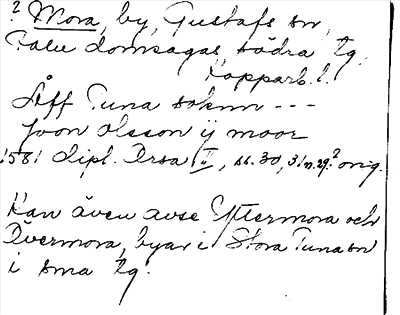 ? Mora, by, Gustafs sn,
Falu domsagas södra tg.
Kopparb. l.
Åff Tuna soknn ---
Joon olsson ij moor
1581 Dipl. Drsa II, ss. 30, 31 n. 29? orig.
Kan även avse Yttermora och
Övermora, byar i Stora Tuna sn
i sma tg.